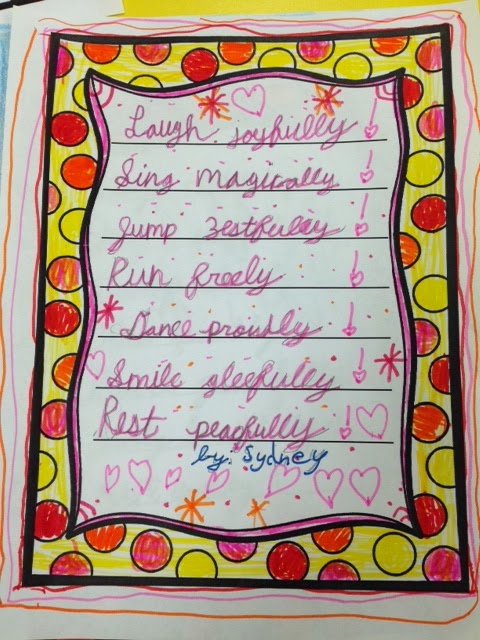 Laugh joyfully!
Sing magically!
Jump zestfully!
Run freely!
Dance proudly!
Smile gleefully!
Rest peacefully!
by: Sydney